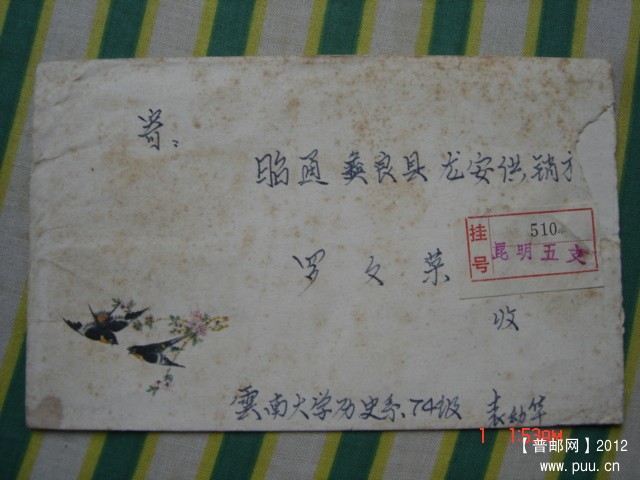 寄：
昭通 彝良县 龙安供销
挂号
510
昆明五支
罗文荣
收
雲南大学历史系.74级 袁幼华
1 1:53PM
【普邮网】2012
www.puu.cn